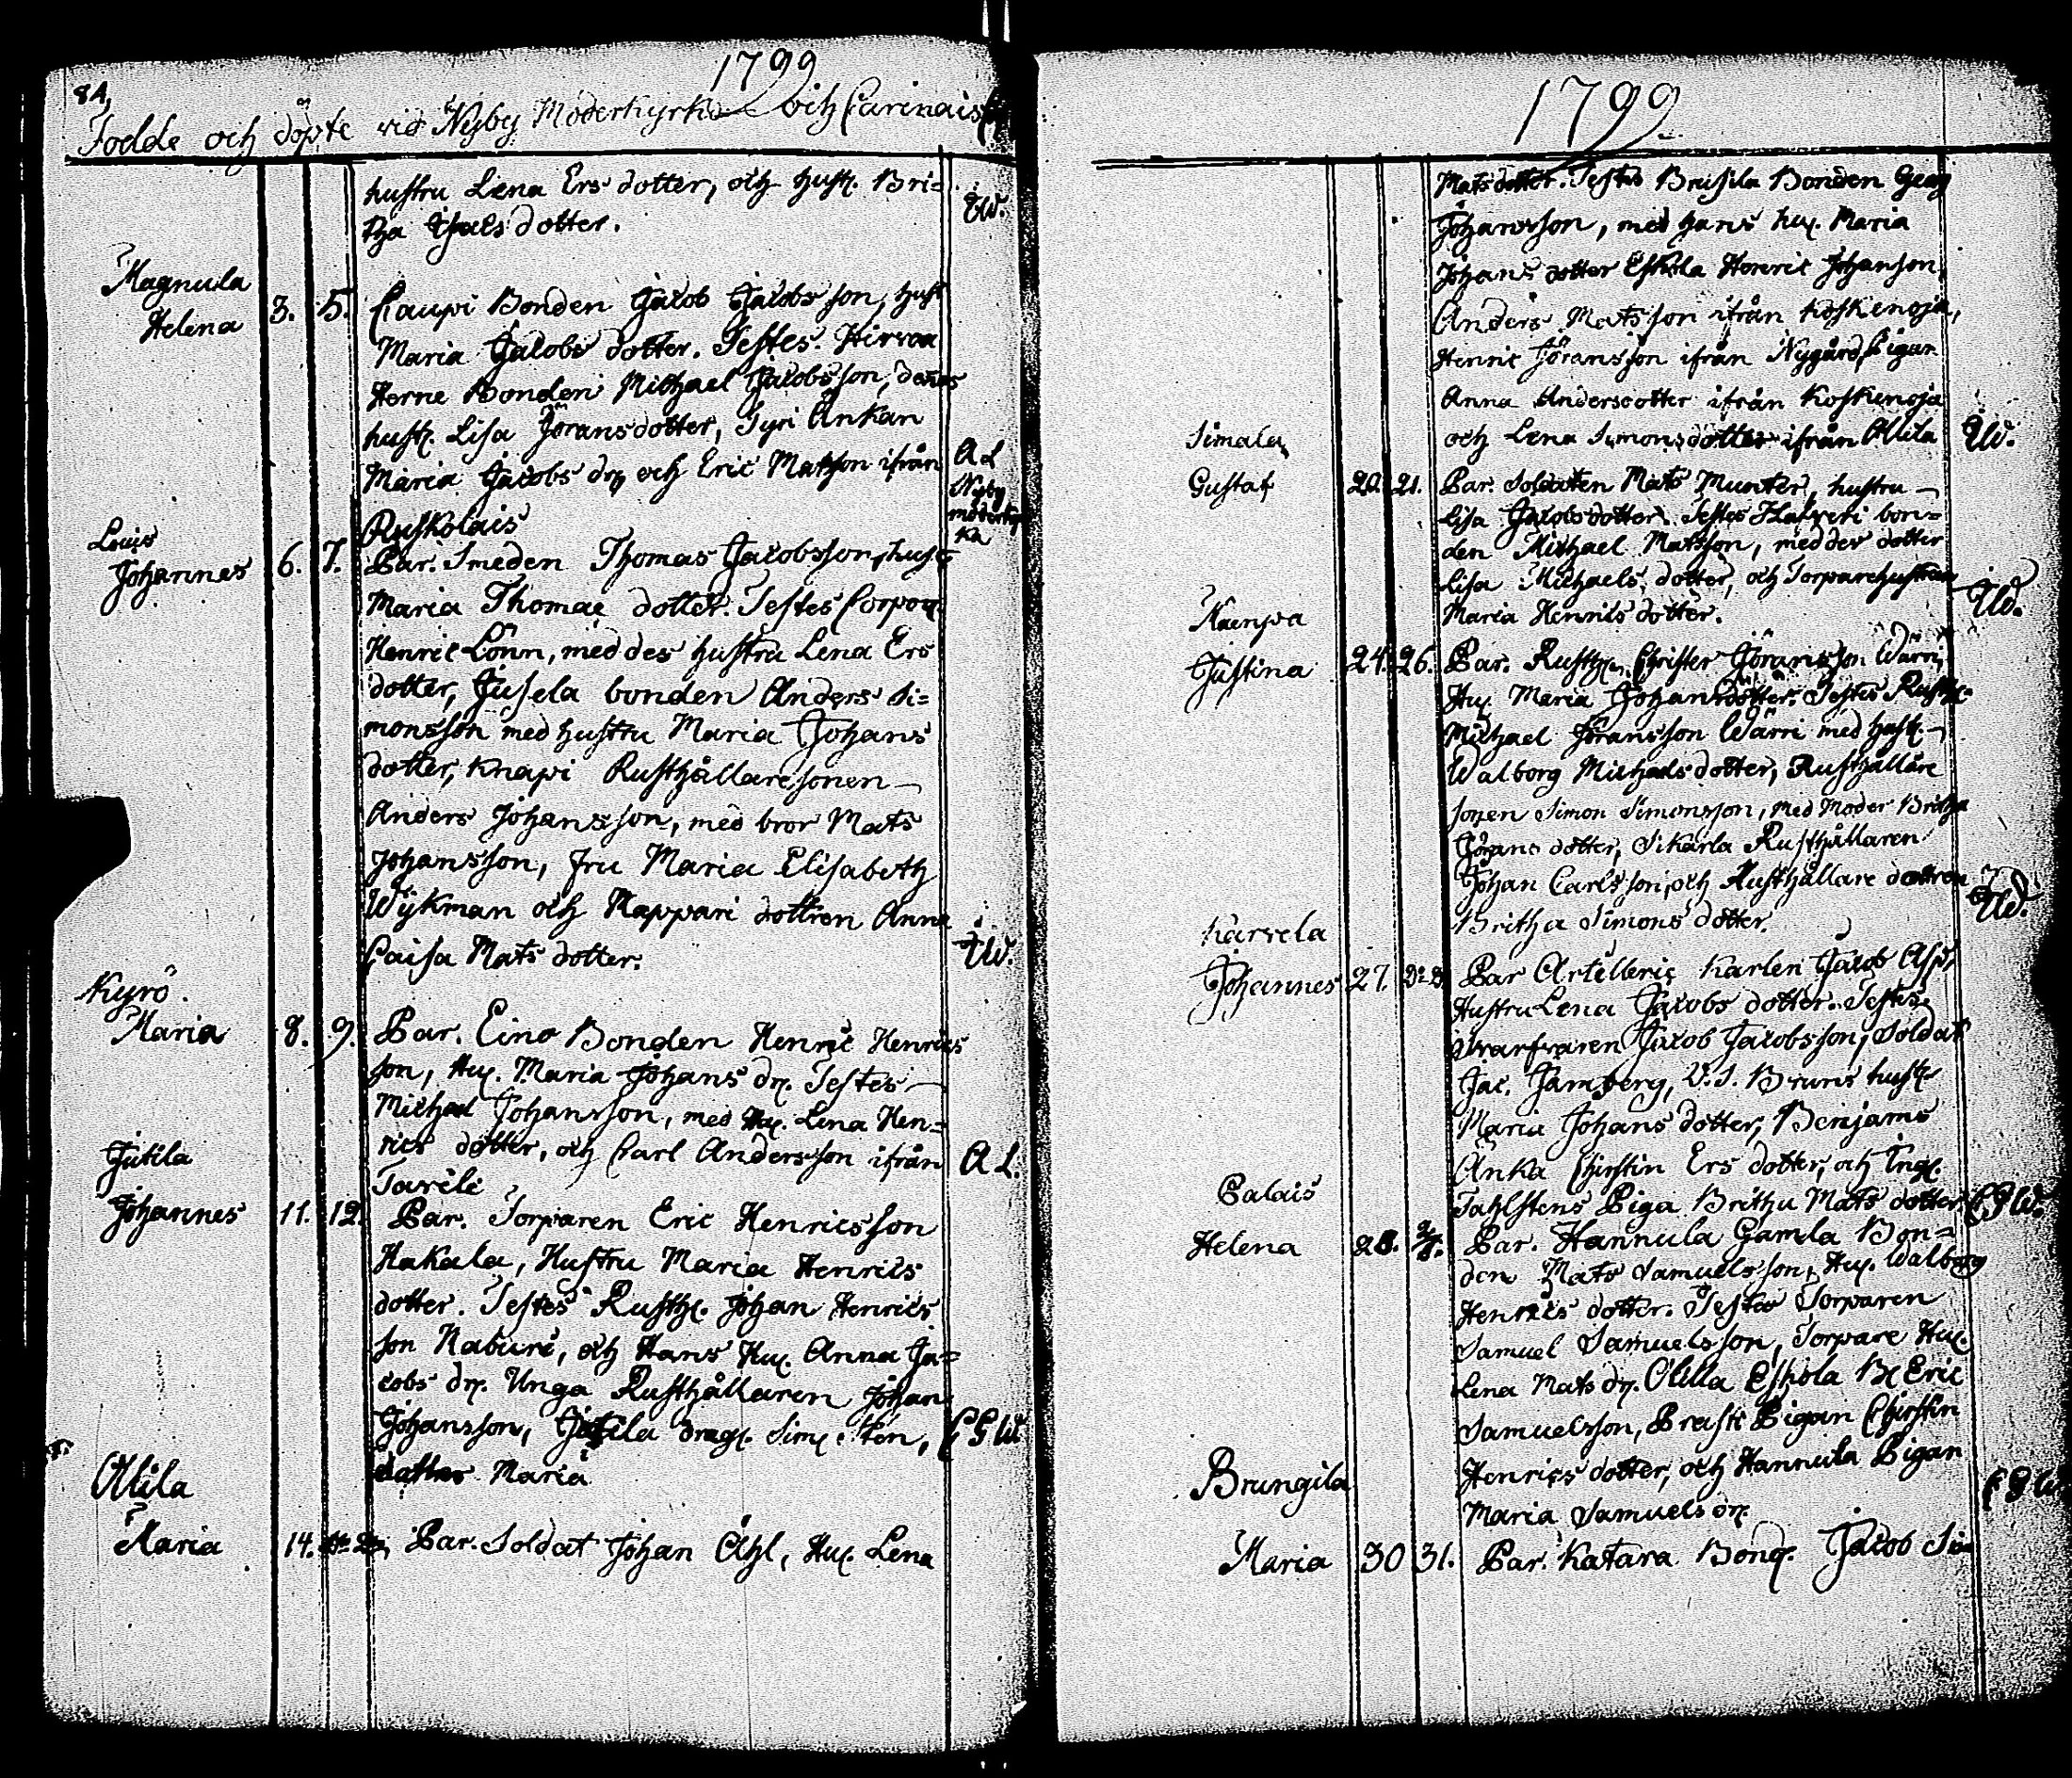 84,
1799
Födde och döpte vid Nyby Moderkyrka och Carinais
hustru Lena Ers dotter, och hust. Bri=
tha Isacs dotter. TW.
Magnula
Helena 3. 5. Caupi Bonden Jacob Jacobs son, hust
Maria Jacobs dotter. Testes. Hirvoa
Herne Bonden Michael Jacobsson, dennes
hust. Lisa Göransdotter, Gyri Änkan
Maria Jacobs dr, och Eric Matsson ifrån A L
Ruskolais Nyby moderkyr ka
Louis
Johannes 6. 7. Par. Smeden Thomas Jacobsson, hust
Maria Thomae dotter. Testes Corpor
Henric Lönn, med des hustru Lena Ers
dotter, Jusela bonden Anders Si=
monsson med hustru Maria Johans
dotter, Knapi Rusthållaresonen
Anders Johansson, med bror Mats
Johansson, fru Maria Elisabeth
Wijkman och Nappari dottren Anna
Caisa Mats dotter. TW.
Kyrö.
Maria 8. 9. Par. Eino Bonden Henric Henrics
son, Hu. Maria Johans dr. Testes
Michael Johansson, med Hu. Lena Hen=
rics dotter, och Carl Andersson ifrån A L.
Tavile
Jutila
Johannes 11. 12. Par. Torparen Eric Henricsson
Hakala, Hustru Maria Henrics
dotter. Testes Rusth. Johan Henrics
son Naburi, och Hans Hu. Anna Ja=
cobs dr. Unga Rusthållaren Johan
Johansson, Jutila drag. Sim ten, CGW.
dotter Maria
Allila
Maria 14. Par. Soldat Johan Åhl, Hu. Lena
1799
Mats dotter. Testes Brusila Bonden Georg
Johansson, med hans hu. Maria
Johans dotter Eskola Henric Johanson,
Anders Matsson ifrån Koskenoja,
Henric Göransson ifrån Nygård, Pigan
Anna Andersdotter ifrån Koskenoja
och Lena Simonsdotter ifrån Allila TW.
Simala
Gustaf 20. 21. Par. Soldaten Mats Munter, hustru
Lisa Jacobsdotter. Testes Hatveri bon=
den Michael Matsson, med des dotter
Lisa Michaels dotter, och Torparehustrun
Maria Henrics dotter. TW.
Kaempa
Justina 24. 26. Par. Rusth. Christer Göransson Wärri,
Hu. Maria Johansdotter. Testes Rusth.
Michael Göransson Wärri med hust.
Walborg Michaels dotter, Rusthållare
sonen Simon Simonsson, med Moder Britha
Görans dotter, Sikärla Rusthållaren
Johan Carlsson, och Rusthållare dottren
Britha Simons dotter. TW.
Kärvela
Johannes 27. Par Artilleric Karlen Jacob Asp,
Hustru Lena Jacobs dotter. Testes
Svarfvaren Jacob Jacobsson, Soldat
Jac. Jamberg, V. S. Bruns hust.
Maria Johans dotter, Benjams
Änka Christin Ers dotter, och Insp.
Tahlstens Piga Britha Mats dotter. CGW.
Palais
Helena 28. Par. Hannula Gamla Bon=
den Mats Samuelsson, Hu. Walborg
Henrics dotter. Testes Torparen
Samuel Samuelsson, Torpare Hu.
Lena Mats dr. Olilla Eskola B. Eric
Samuelsson, Prästi Pigan Christin
Henrics dotter, och Hannula Pigan
Maria Samuels dr. CGW.
Brungila
Maria 30 31. Par. Katara Bond. Jacob Si=